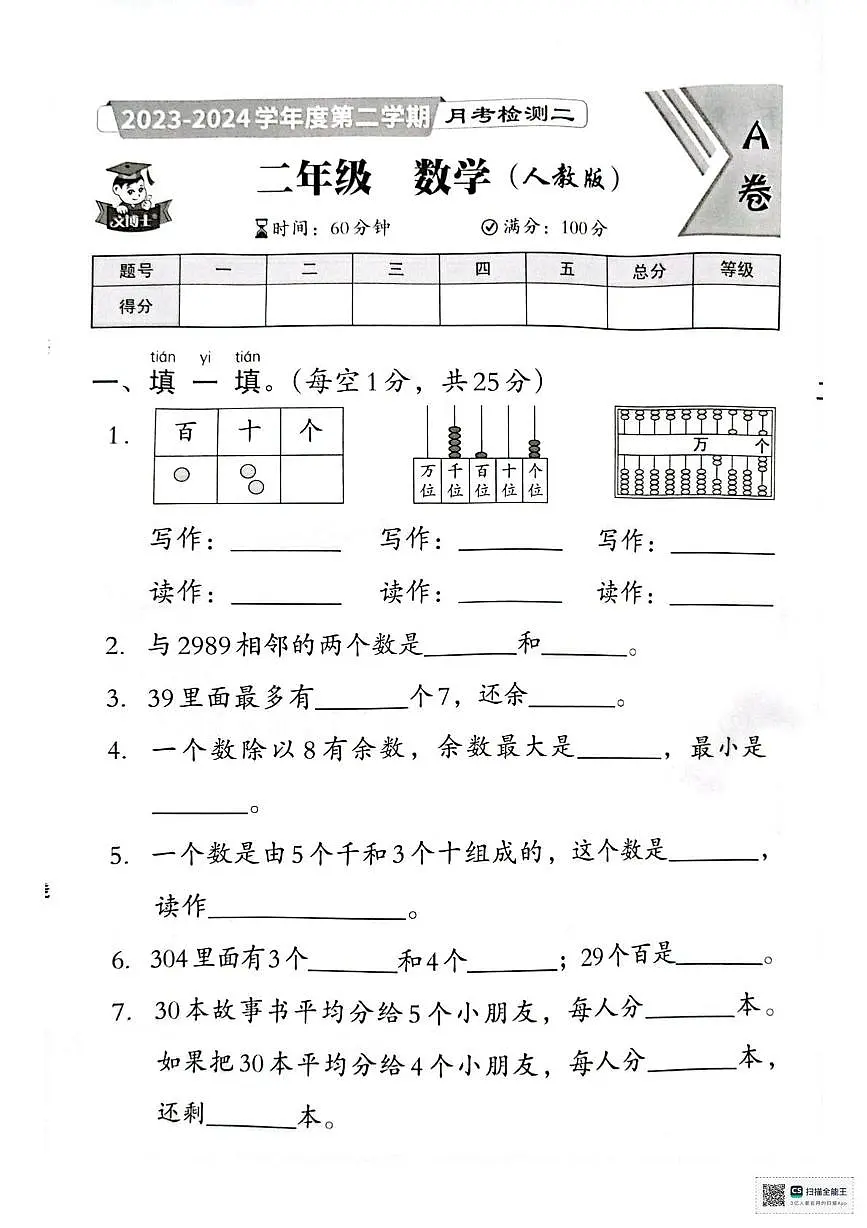 2023-2024学年度第二学期 月考检测二
A卷
二年级 数学(人教版)
时间:60分钟 满分:100分
题号 一 二 三 四 五 总分 等级
得分
tián yi tián
一、填一填。(每空1分,共25分)
1. 百 十 个
万位 千位 百位 十位 个位
万 个
写作:______ 写作:______ 写作:______
读作:______ 读作:______ 读作:______
2. 与2989相邻的两个数是______和______。
3. 39里面最多有______个7,还余______。
4. 一个数除以8有余数,余数最大是______,最小是
______。
5. 一个数是由5个千和3个十组成的,这个数是______,
读作____________。
6. 304里面有3个______和4个______;29个百是______。
7. 30本故事书平均分给5个小朋友,每人分______本。
如果把30本平均分给4个小朋友,每人分______本,
还剩______本。
CS 扫描全能王